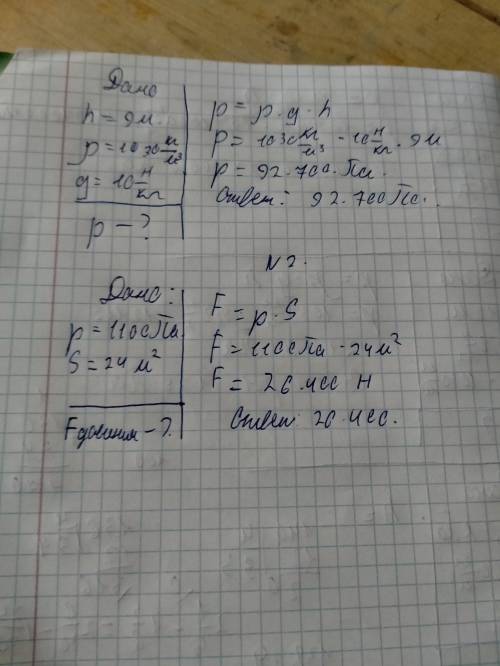 Дано
h = 9м.
ρ = 1030 кг/м³
g = 10 Н/кг
p - ?
p = ρ · g · h
p = 1030 кг/м³ · 10 Н/кг · 9м
p = 92.700 Па.
Ответ: 92.700 Па.
N 2.
Дано:
p = 1100 Па
S = 24 м²
F давлен - ?
F = p · S
F = 1100 Па · 24 м²
F = 26.400 Н
Ответ 26.400.